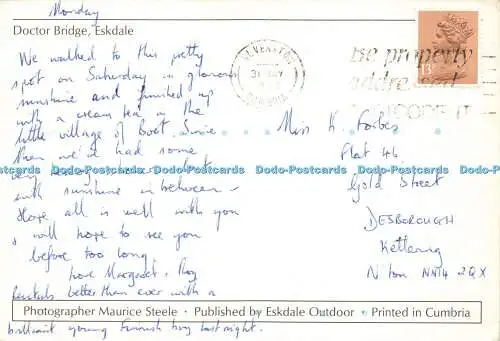 Monday
Doctor Bridge, Eskdale
We walked to this pretty
spot on Saturday in glorious
sunshine and finished up
with a cream tea in the
little village of Boot. Since
then we'd had some
with sunshine in between -
Hope all is well with you
& will hope to see you
before too long.
love Margaret & Ray
better than ever with a
brilliant young Finnish boy last night.
ULVERSTON
31
CUMBRIA
Be properly
addressed
POSTCODE IT
13
Miss K. Forbes
Flat 46
Gold Street
DESBOROUGH
Kettering
N'ton NN14 2QX
Dodo-Postcards Dodo-Postcards Dodo-Postcards Dodo-Postcards Dodo-Postcards
Photographer Maurice Steele · Published by Eskdale Outdoor · Printed in Cumbria